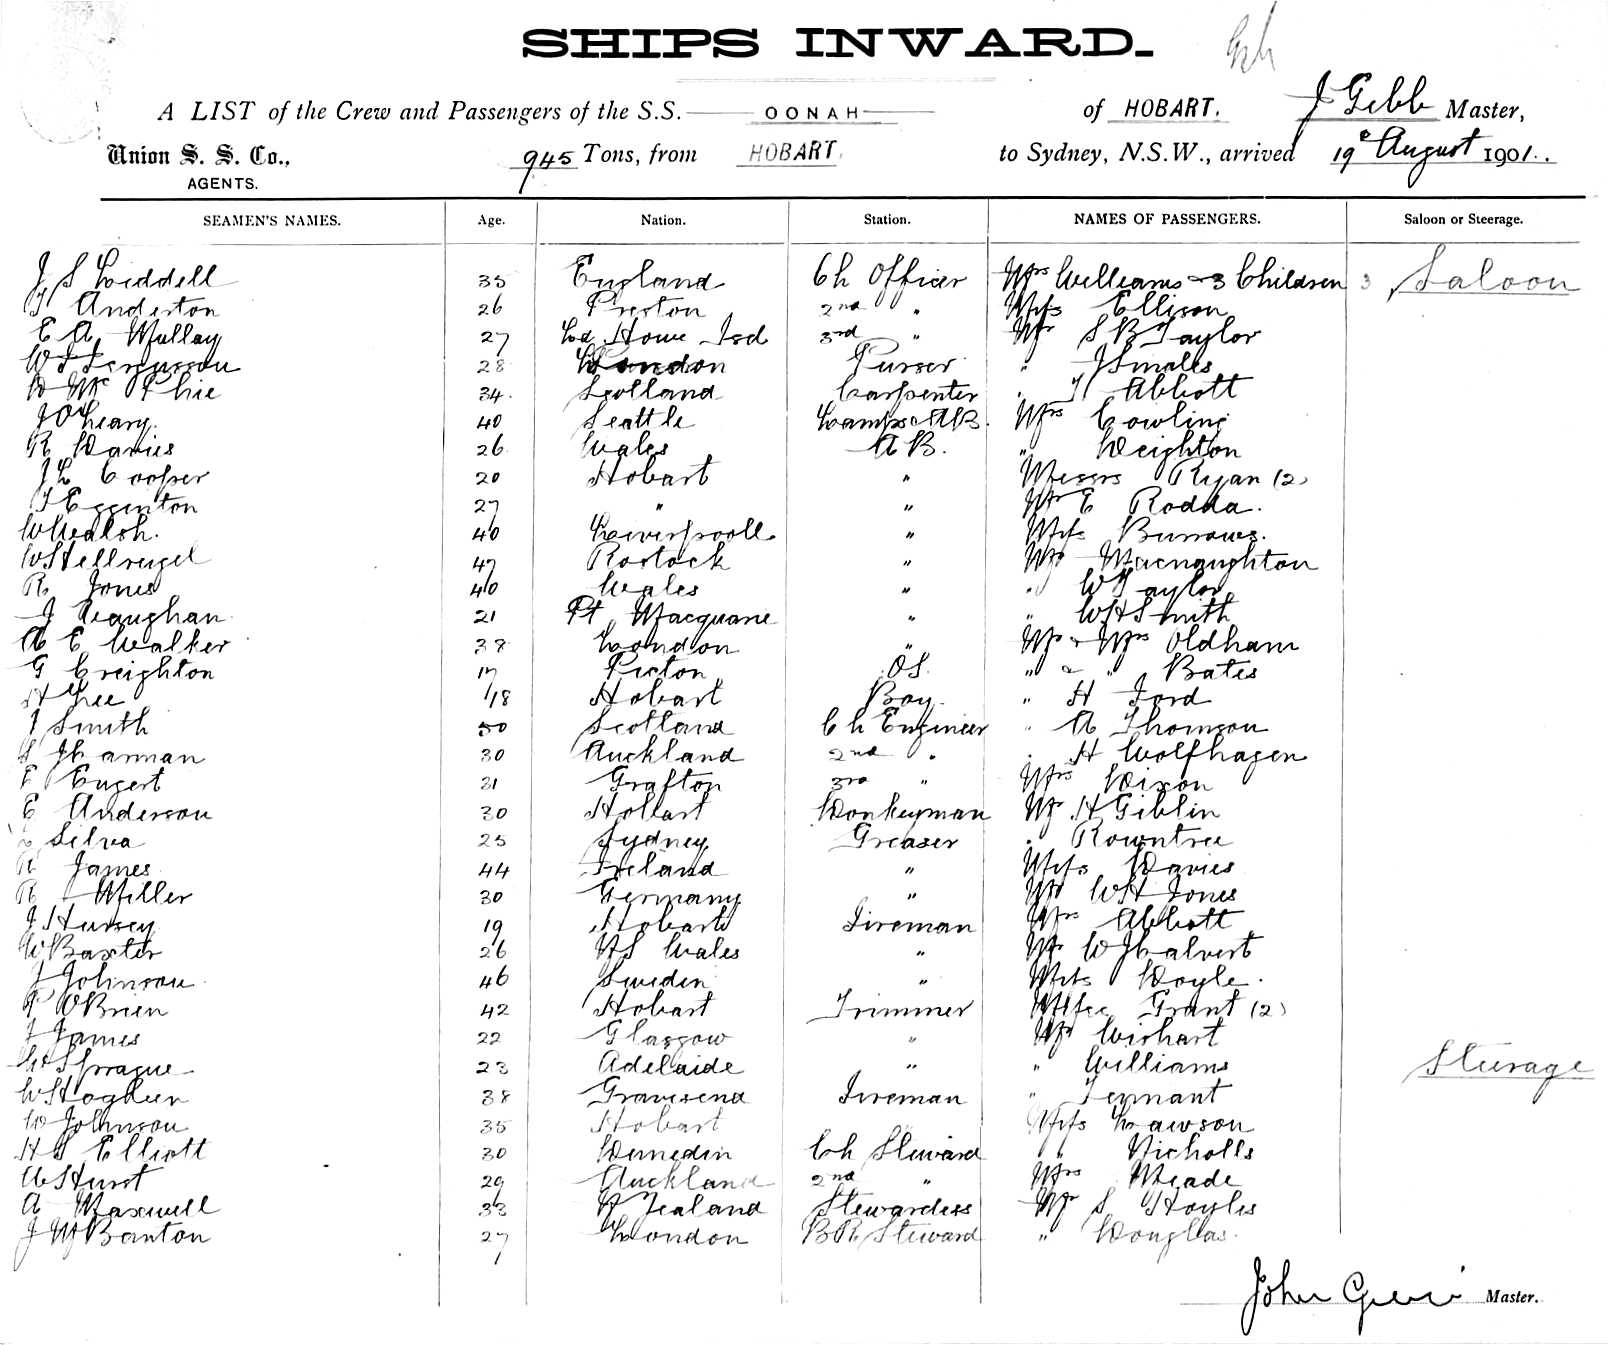 SHIPS INWARD.
A LIST of the Crew and Passengers of the S.S. OONAH of HOBART. J Gibb Master,
Union S. S. Co., 945 Tons, from HOBART. to Sydney, N.S.W., arrived 19 August 1901.
AGENTS.
SEAMEN'S NAMES. Age. Nation. Station. NAMES OF PASSENGERS. Saloon or Steerage.
J S Liddell 35 England Ch Officer Mrs Williams & 3 Children 3 Saloon
Anderton 26 Preston 2nd " Miss Ellison
E A Mullay 27 Ld Howe Isd 3rd " Mr S B Taylor
W J Fergusson 28 London Purser " J Smales
D Mc Phie 34. Scotland Carpenter " T Abbott
J O'Leary. 40 Seattle Lamps & AB. Mrs Cowling
R Davies 26. Wales AB. " Deighton
J L Cooper 20 Hobart " Messrs Ryan (2)
J Egginton 27 " " Mr E Rodda.
W Walsh. 40 Liverpooll " Miss Burrows.
W Stellreigel 47 Rostock " Mr Macnaughton
R. Jones 40 Wales " " W Taylor
J Vaughan 21 Pt Macquarie " " W H Smith
A E Walker 38 London " Mr & Mrs Oldham
G Creighton 17 Picton OS. " & " Bates
H Gee 18 Hobart Boy. " H Ford
J Smith 50 Scotland Ch Engineer " A Thomson
Jharman 30 Auckland 2nd " " H Wolfhagen
E Engert 31 Grafton 3rd " Mrs Dixon
E Anderson 30 Hobart Donkeyman Mr H Giblin
Silva 25 Sydney Greaser " Rowntree
R James 44 Ireland " Miss Davies
R Miller 30 Germany " Mr W H Jones
J Hursey 19 Hobart Fireman Mrs Abbott
W Baxter 26 N S Wales " Mr W J Calvert
J Johnson 46 Sweden " Miss Doyle.
P O'Brien 42 Hobart Trimmer Misses Grant (2)
J James 22 Glasgow " Mr Wishart
Sprague 23 Adelaide " " Williams Steerage
W Stoghen 38 Gravesend Fireman " Tennant
W Johnson 35 Hobart Miss Lawson
H S Elliott 30 Dunedin Ch Steward " Nicholls
A Hurst 29 Auckland 2nd " Mrs Meade
A Maxwell 33 N Zealand Stewardess Mr S Hoyles
J M Banton 27 London BR Steward " Douglas.
John Master.